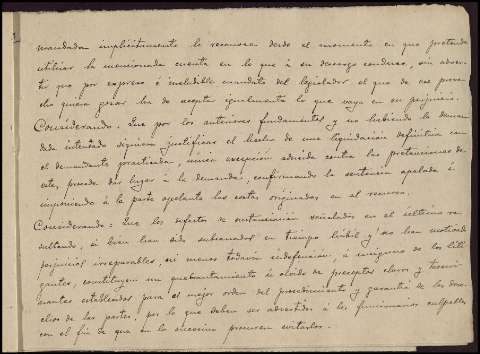 mandadas implicitamente lo reconoce desde el momento en que pretende
utilizar la mencionada cuenta en lo que á su descargo conduce, sin adver-
tir que por expreso é ineludible mandato del legislador el que de ese prove-
cho quiera gozar ha de aceptar igualmente lo que vaya en su perjuicio.
Considerando: Que por los anteriores fundamentos y no habiendo la deman
dada intentado siquiera justificar el hecho de una liquidación definitiva con
el demandante practicada, única excepción aducida contra las pretensiones de
este, procede dar lugar á la demanda, confirmando la sentencia apelada é
imponiendo á la parte apelante las costas originadas en el recurso.
Considerando: Que los defectos de sustanciación señalados en el último re
sultando, si bien han sido subsanados en tiempo hábil y no han motivado
perjuicios irreparables, ni menos todavía indefensión, á ninguno de los liti
gantes, constituyen un quebrantamiento ú olvido de preceptos claros y termi-
nantes establecidos para el mejor orden del procedimiento y garantía de los dere
chos de las partes, por lo que deben ser advertidos á los funcionarios culpables
con el fin de que en lo sucesivo procuren evitarlos.